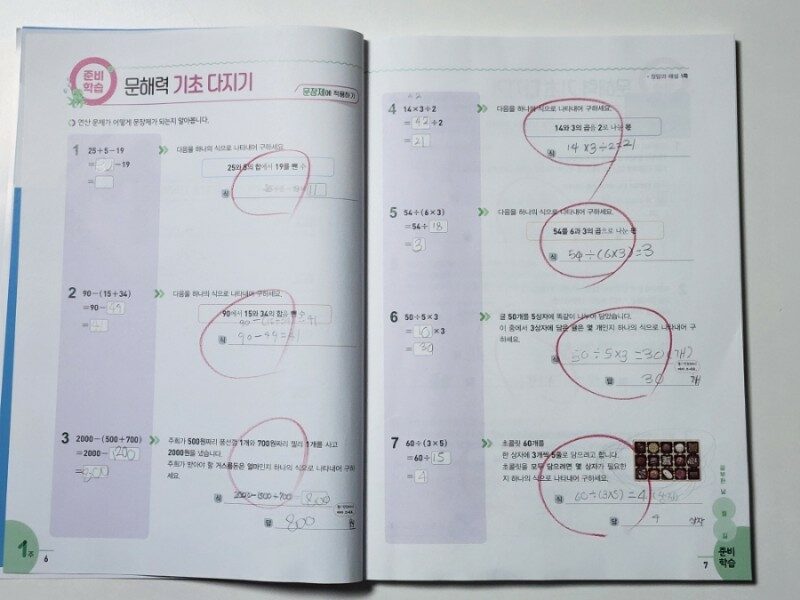 준비
학습
문해력 기초 다지기
문장제에 적용하기
연산 문제가 어떻게 문장제가 되는지 알아봅니다.
1 25+5-19
= -19
=
다음을 하나의 식으로 나타내어 구하세요.
25와 5의 합에서 19를 뺀 수
식 11
2 90-(15+34)
=90- 49
=
다음을 하나의 식으로 나타내어 구하세요.
90에서 15와 34의 합을 뺀 수
식 90-49=
3 2000-(500+700)
=2000- 1200
= 800
주희가 500원짜리 풍선껌 1개와 700원짜리 젤리 1개를 사고
2000원을 냈습니다.
주희가 받아야 할 거스름돈은 얼마인지 하나의 식으로 나타내어 구하
세요.
식 = 800
답 800 원
1주 6
정답과 해설 1쪽
4 14×3÷2
= 42 ÷2
= 21
다음을 하나의 식으로 나타내어 구하세요.
14와 3의 곱을 2로 나눈 몫
식 14×3÷2=21
5 54÷(6×3)
=54÷ 18
= 3
다음을 하나의 식으로 나타내어 구하세요.
54를 6과 3의 곱으로 나눈 몫
식 54÷(6×3)=3
6 50÷5×3
= 10 ×3
= 30
귤 50개를 5상자에 똑같이 나누어 담았습니다.
이 중에서 3상자에 담은 귤은 몇 개인지 하나의 식으로 나타내어 구
하세요.
식 50÷5×3=30(개)
답 30 개
7 60÷(3×5)
=60÷ 15
= 4
초콜릿 60개를
한 상자에 3개씩 5줄로 담으려고 합니다.
초콜릿을 모두 담으려면 몇 상자가 필요한
지 하나의 식으로 나타내어 구하세요.
식 60÷(3×5)=4
답 4 상자
공부한 날
월
일
준비
학습
7